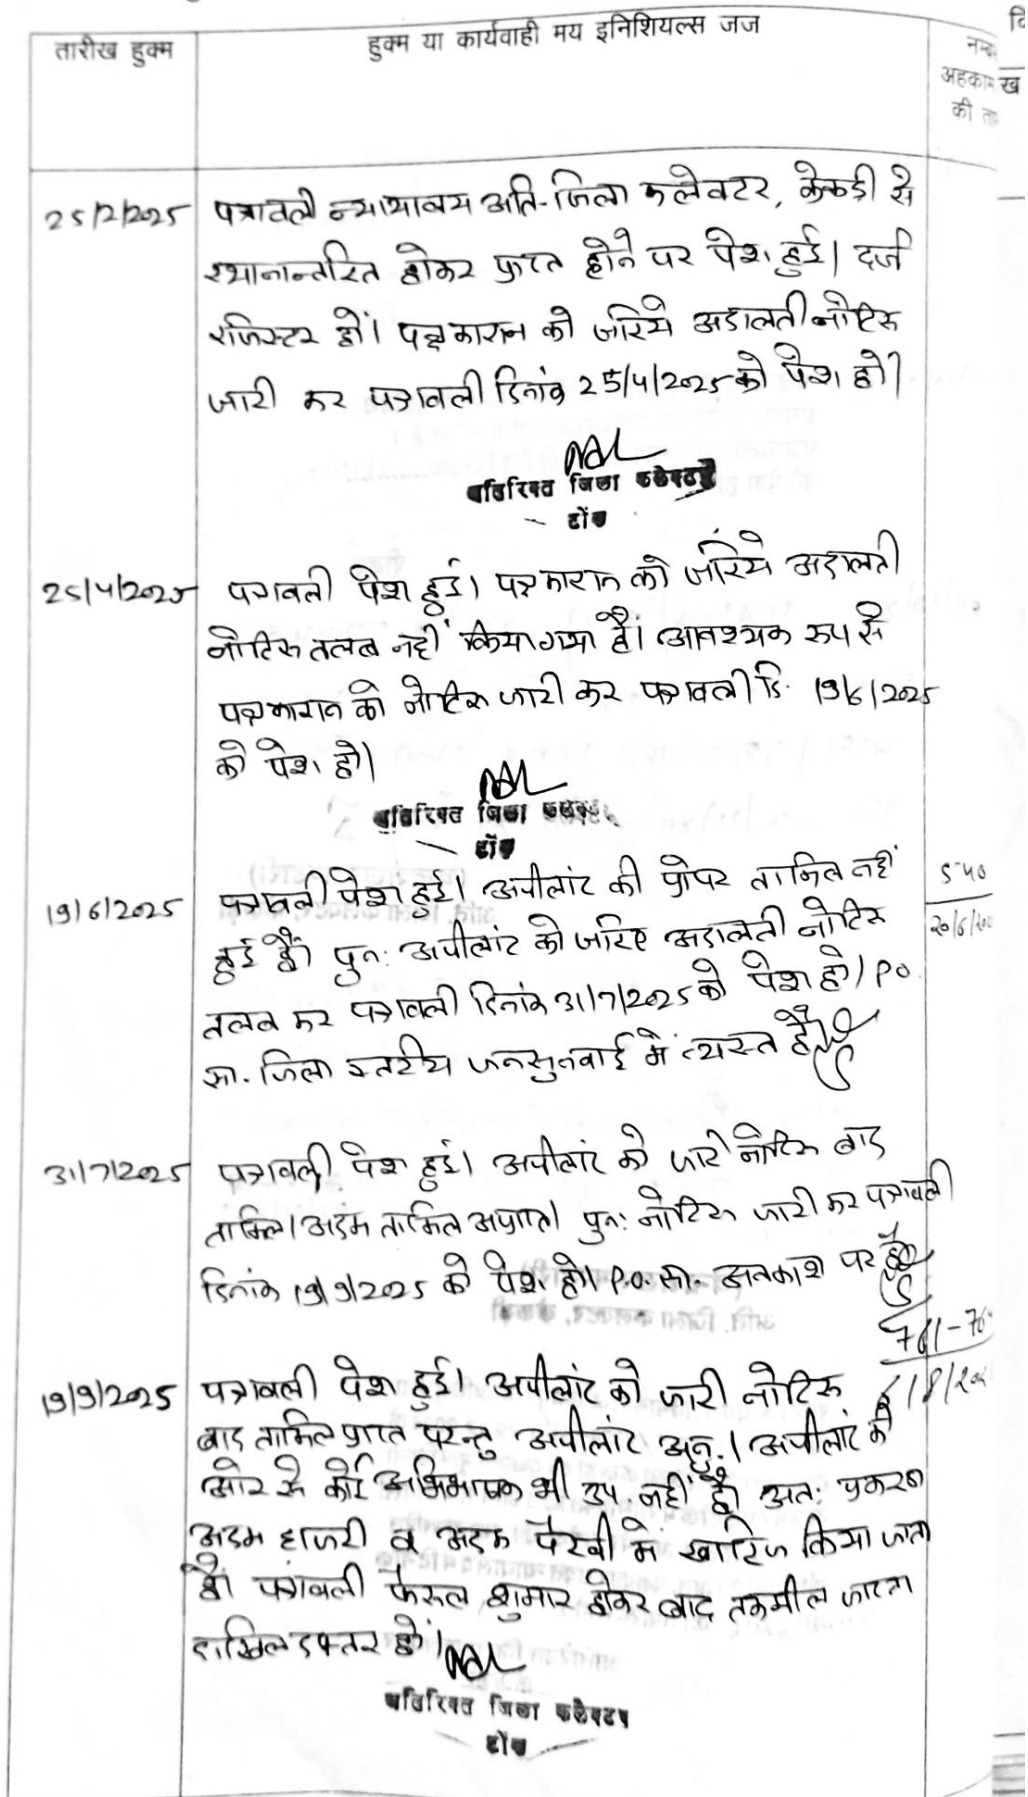 तारीख हुक्म
हुक्म या कार्यवाही मय इनिशियल्स जज
अहकाम
की
ख
25/2/2025
पत्रावली न्यायालय अति. जिला कलेक्टर, केकडी से
स्थानान्तरित होकर प्राप्त होने पर पेश हुई। दर्ज
रजिस्टर हों। पक्षकारान को जरिये अदालती नोटिस
जारी कर पत्रावली दिनांक 25/4/2025 को पेश हो।
अतिरिक्त जिला कलेक्टर
टोंक
25/4/2025
पत्रावली पेश हुई। पक्षकारान को जरिये अदालती
नोटिस तलब नहीं किया गया है। आवश्यक रूप से
पक्षकारान को नोटिस जारी कर पत्रावली दि. 19/6/2025
को पेश हो।
अतिरिक्त जिला कलेक्टर
टोंक
19/6/2025
पत्रावली पेश हुई। अपीलांट की प्रोपर तामिल नहीं
हुई है। पुन: अपीलांट को जरिए अदालती नोटिस
तलब कर पत्रावली दिनांक 31/7/2025 को पेश हो। P.O.
सा. जिला स्तरीय जनसुनवाई में व्यस्त है।
540
31/7/2025
पत्रावली पेश हुई। अपीलांट को जारी नोटिस बाद
तामिल/अदम तामिल अप्राप्त। पुन: नोटिस जारी कर पत्रावली
दिनांक 19/9/2025 को पेश हो। P.O. सा. अवकाश पर है।
19/9/2025
पत्रावली पेश हुई। अपीलांट को जारी नोटिस
बाद तामिल प्राप्त परन्तु अपीलांट अनु.। अपीलांट की
ओर से कोई अभिभाषक भी उप. नहीं है। अत: प्रकरण
अदम हाजरी व अदम पैरवी में खारिज किया जाता
है। पत्रावली फैसल शुमार होकर बाद तकमील जाप्ता
दाखिल दफ्तर हो।
अतिरिक्त जिला कलेक्टर
टोंक